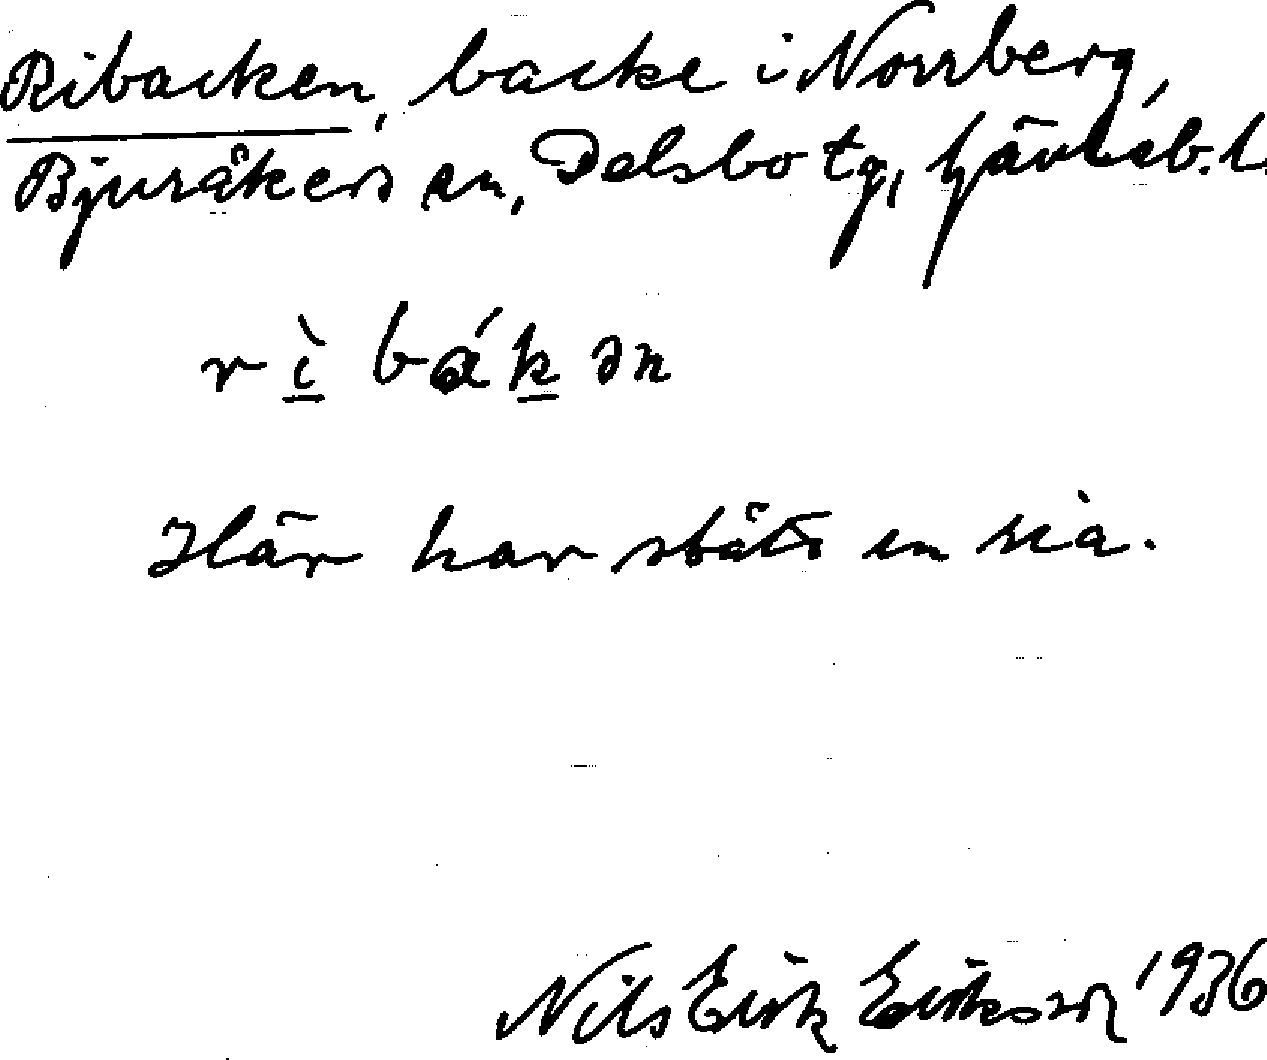 Ribacken, backe i Norrberg,
Bjuråkers sn, Delsbo tg, Gävleb. l.
rì bák ən
Här har stått en ria.
Nils Erik Eriksson 1936